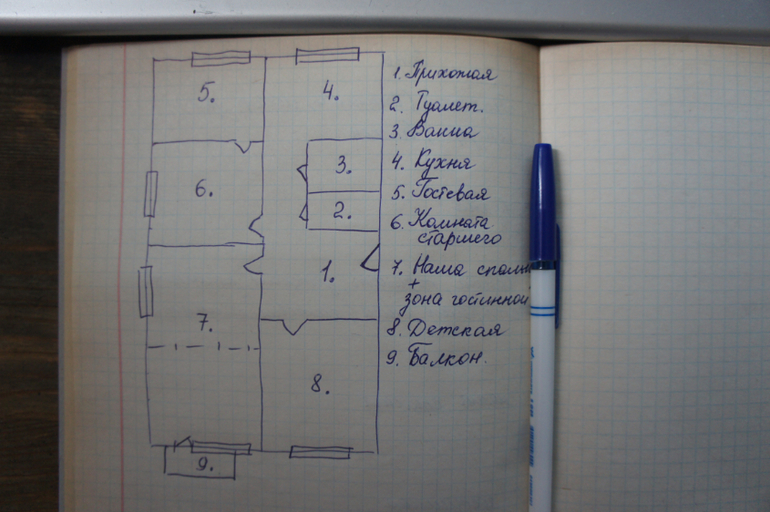 5.
4.
6.
3.
2.
1.
7.
8.
9.
1. Прихожая
2. Туалет.
3. Ванна
4. Кухня
5. Гостевая
6. Комната
старшего
7. Наша
+
зона гостинной
8. Детская
9. Балкон.